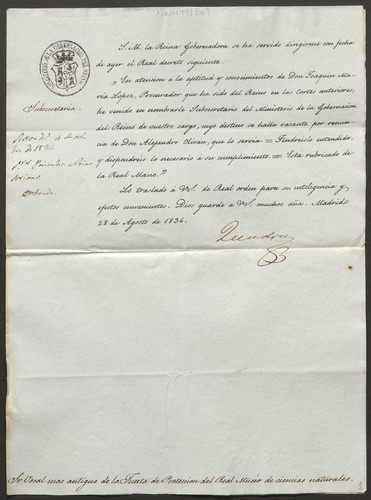 S. M. la Reina Gobernadora se ha servido dirigirme con fecha
de ayer el Real decreto siguiente.
"En atencion á la aptitud y conocimientos de Don Joaquin Ma-
ría Lopez, Procurador que ha sido del Reino en las Cortes anteriores,
he venido en nombrarle Subsecretario del Ministerio de la Gobernacion
del Reino de vuestro cargo, cuyo destino se halla vacante por renun-
cia de Don Alejandro Olivan, que lo servia. = Tendreislo entendido
y dispondreis lo necesario á su cumplimiento. = Está rubricado de
la Real Mano."
Lo traslado á VS. de Real orden para su inteligencia y
efectos convenientes. Dios guarde á VS. muchos años. Madrid
28 de Agosto de 1836.
Subsecretaría.
de 1836
Sr. Vocal mas antiguo de la Junta de Proteccion del Real Museo de ciencias naturales.